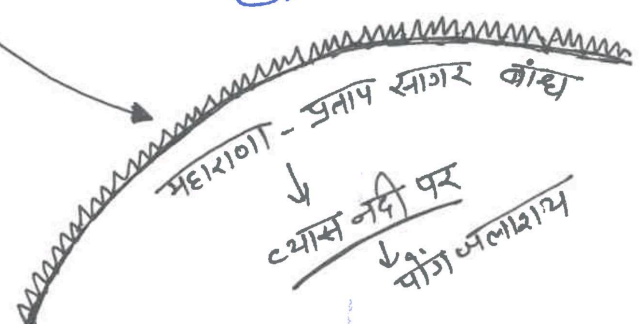 महाराणा - प्रताप सागर बांध
↓
व्यास नदी पर
↓
पोंग जलाशय